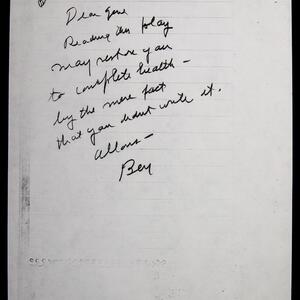 Dear Gene
Reading this play
may restore you
to complete health –
by the mere fact
that you didnt write it.
Allons –
Ben